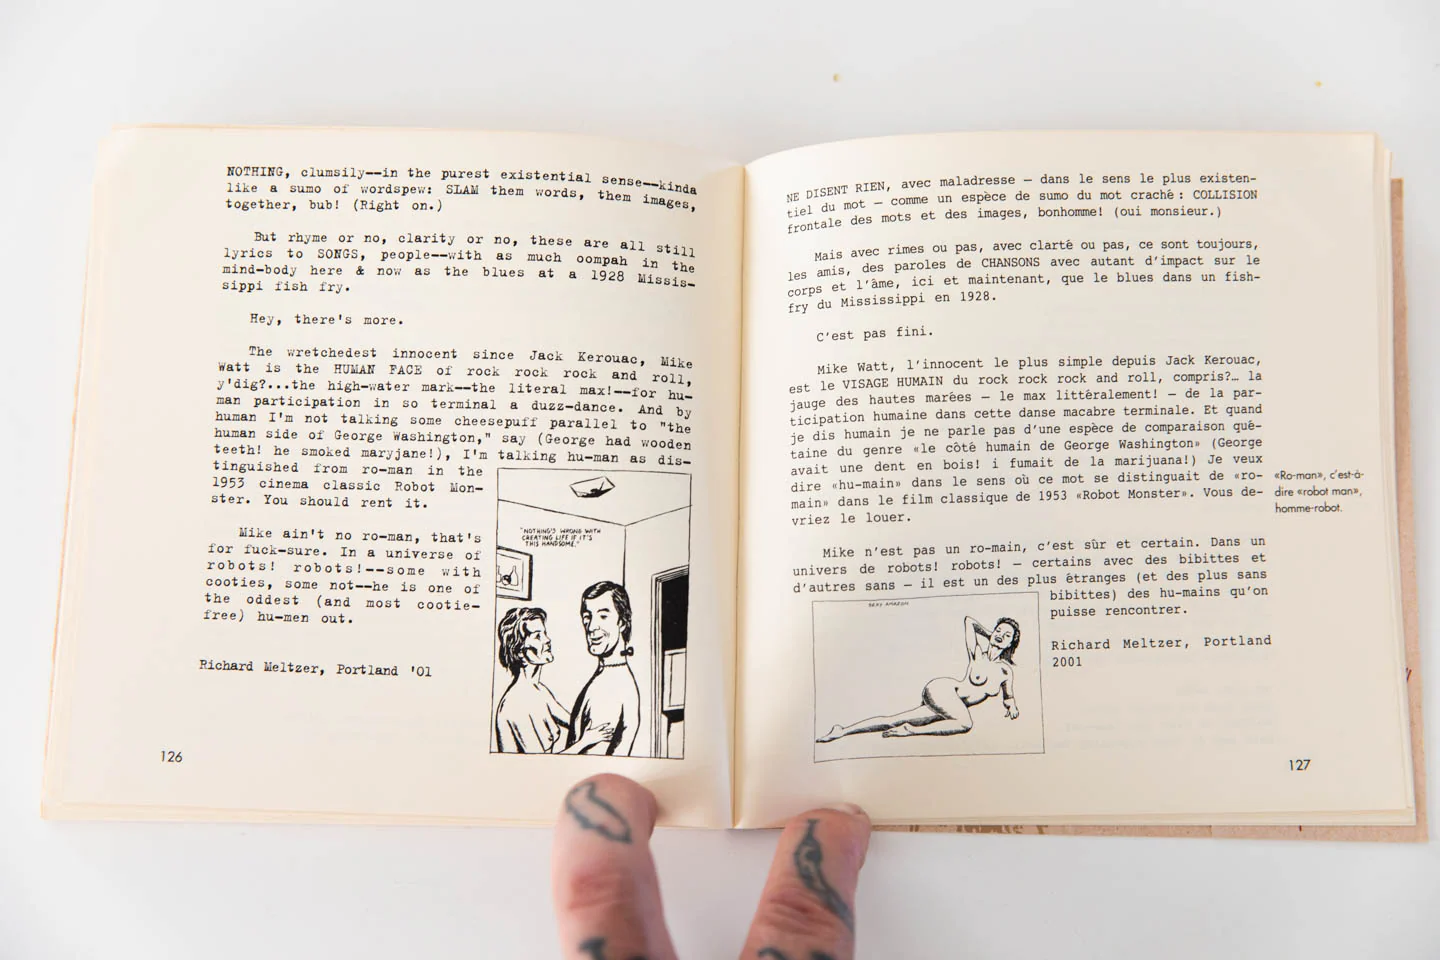 NOTHING, clumsily--in the purest existential sense--kinda
like a sumo of wordspew: SLAM them words, them images,
together, bub! (Right on.)
But rhyme or no, clarity or no, these are all still
lyrics to SONGS, people--with as much oompah in the
mind-body here & now as the blues at a 1928 Missis-
sippi fish fry.
Hey, there's more.
The wretchedest innocent since Jack Kerouac, Mike
Watt is the HUMAN FACE of rock rock rock and roll,
y'dig?...the high-water mark--the literal max!--for hu-
man participation in so terminal a duzz-dance. And by
human I'm not talking some cheesepuff parallel to "the
human side of George Washington," say (George had wooden
teeth! he smoked maryjane!), I'm talking hu-man as dis-
tinguished from ro-man in the
1953 cinema classic Robot Mon-
ster. You should rent it.
Mike ain't no ro-man, that's
for fuck-sure. In a universe of
robots! robots!--some with
cooties, some not--he is one of
the oddest (and most cootie-
free) hu-men out.
Richard Meltzer, Portland '01
"NOTHING'S WRONG WITH
CREATING LIFE IF IT'S
THIS HANDSOME."
126
NE DISENT RIEN, avec maladresse – dans le sens le plus existen-
tiel du mot – comme un espèce de sumo du mot craché : COLLISION
frontale des mots et des images, bonhomme! (oui monsieur.)
Mais avec rimes ou pas, avec clarté ou pas, ce sont toujours,
les amis, des paroles de CHANSONS avec autant d'impact sur le
corps et l'âme, ici et maintenant, que le blues dans un fish-
fry du Mississippi en 1928.
C'est pas fini.
Mike Watt, l'innocent le plus simple depuis Jack Kerouac,
est le VISAGE HUMAIN du rock rock rock and roll, compris?… la
jauge des hautes marées – le max littéralement! – de la par-
ticipation humaine dans cette danse macabre terminale. Et quand
je dis humain je ne parle pas d'une espèce de comparaison qué-
taine du genre «le côté humain de George Washington» (George
avait une dent en bois! i fumait de la marijuana!) Je veux
dire «hu-main» dans le sens où ce mot se distinguait de «ro-
main» dans le film classique de 1953 «Robot Monster». Vous de-
vriez le louer.
«Ro-man», c'est-à-
dire «robot man»,
homme-robot.
Mike n'est pas un ro-main, c'est sûr et certain. Dans un
univers de robots! robots! – certains avec des bibittes et
d'autres sans – il est un des plus étranges (et des plus sans
bibittes) des hu-mains qu'on
puisse rencontrer.
Richard Meltzer, Portland
2001
SEXY AMAZON
127